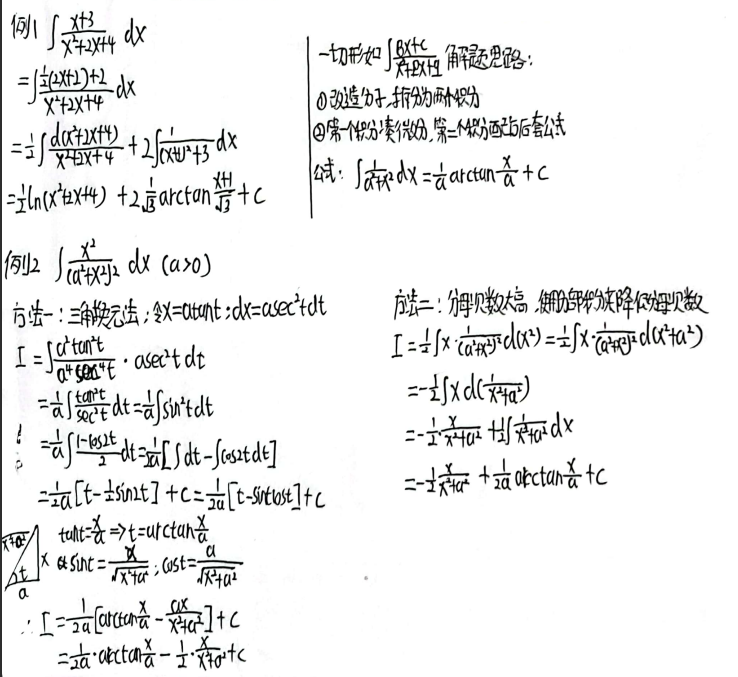 例1 ∫ (x+3)/(x²+2x+4) dx
=∫ (½(2x+2)+2)/(x²+2x+4) dx
=½∫ d(x²+2x+4)/(x²+2x+4) + 2∫ 1/((x+1)²+3) dx
=½ln(x²+2x+4) + 2·1/√3 arctan (x+1)/√3 + C
一切形如 ∫ (Bx+C)/(x²+px+q) 解题思路:
①改造分子,拆分为两个积分
②第一个积分凑微分,第二个积分配方后套公式
公式: ∫ 1/(a²+x²) dx = 1/a arctan x/a + C
例2 ∫ x²/(a²+x²)² dx (a>0)
方法一:三角换元法;令x=atant;dx=asec²tdt
I=∫ a²tan²t/(a⁴sec⁴t) · asec²t dt
=1/a ∫ tan²t/sec²t dt = 1/a ∫sin²tdt
=1/a ∫ (1-cos2t)/2 dt = 1/2a [∫dt-∫cos2tdt]
=1/2a [t-½sin2t] + C = 1/2a [t-sintcost] + C
tant=x/a ⇒ t=arctan x/a
√x²+a² x t a
sint= x/√x²+a² ; cost= a/√x²+a²
∴ I= 1/2a [arctan x/a - ax/(x²+a²)] + C
= 1/2a · arctan x/a - ½ · x/(x²+a²) + C
方法二:分母次数太高,使用分部积分来降低分母次数
I=½∫x· 1/(a²+x²)² d(x²) = ½∫x· 1/(a²+x²)² d(x²+a²)
=-½∫x d(1/(x²+a²))
=-½· x/(x²+a²) + ½∫ 1/(x²+a²) dx
=-½ x/(x²+a²) + 1/2a arctan x/a + C